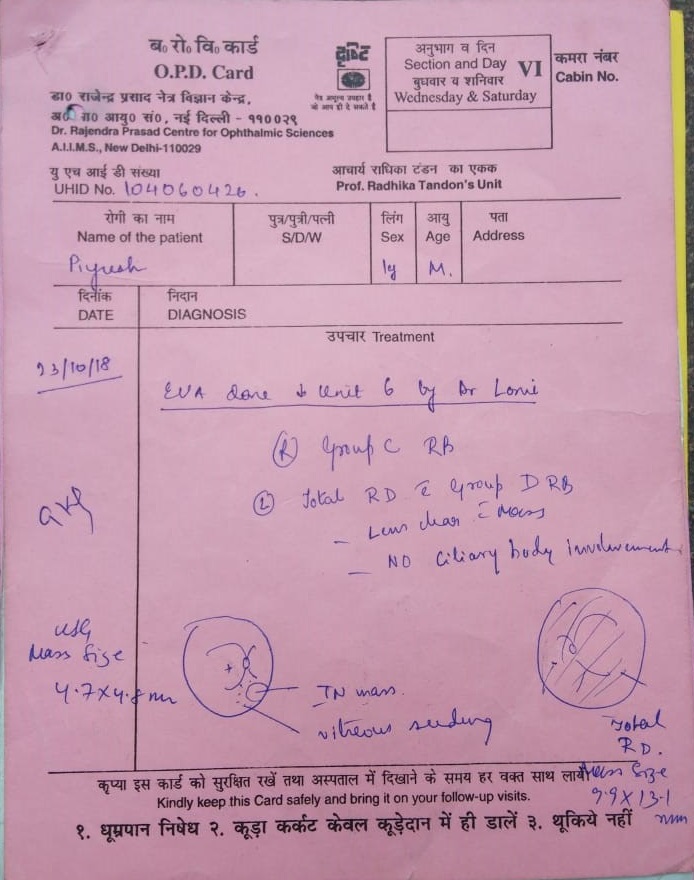 ब० रो० वि० कार्ड
O.P.D. Card
दृष्टि
नेत्र अमूल्य उपहार है
जो आप ही दे सकते है
अनुभाग व दिन
Section and Day VI
बुधवार व शनिवार
Wednesday & Saturday
कमरा नंबर
Cabin No.
डा० राजेन्द्र प्रसाद नेत्र विज्ञान केन्द्र,
आयु० सं०, नई दिल्ली - ११००२९
Dr. Rajendra Prasad Centre for Ophthalmic Sciences
A.I.I.M.S., New Delhi-110029
यु एच आई डी संख्या
UHID No. 104060426.
आचार्य राधिका टंडन का एकक
Prof. Radhika Tandon's Unit
रोगी का नाम
Name of the patient
पुत्र/पुत्री/पत्नी
S/D/W
लिंग
Sex
आयु
Age
पता
Address
Piyush
1y
M.
दिनांक
DATE
निदान
DIAGNOSIS
उपचार Treatment
23/10/18
EUA done Unit 6 by Dr
(R) Group C RB
(L) Total RD c̄ Group D RB
- Lens clear c̄ Mass
- NO Ciliary body involvement
USG
Mass Size
4.7x4.8mm
IN mass.
vitreous seeding
Total
R.D.
Mass Size
9.9 X 13.1
mm
कृप्या इस कार्ड को सुरक्षित रखें तथा अस्पताल में दिखाने के समय हर वक्त साथ लायें
Kindly keep this Card safely and bring it on your follow-up visits.
१. धूम्रपान निषेध २. कूड़ा कर्कट केवल कूड़ेदान में ही डालें ३. थूकिये नहीं